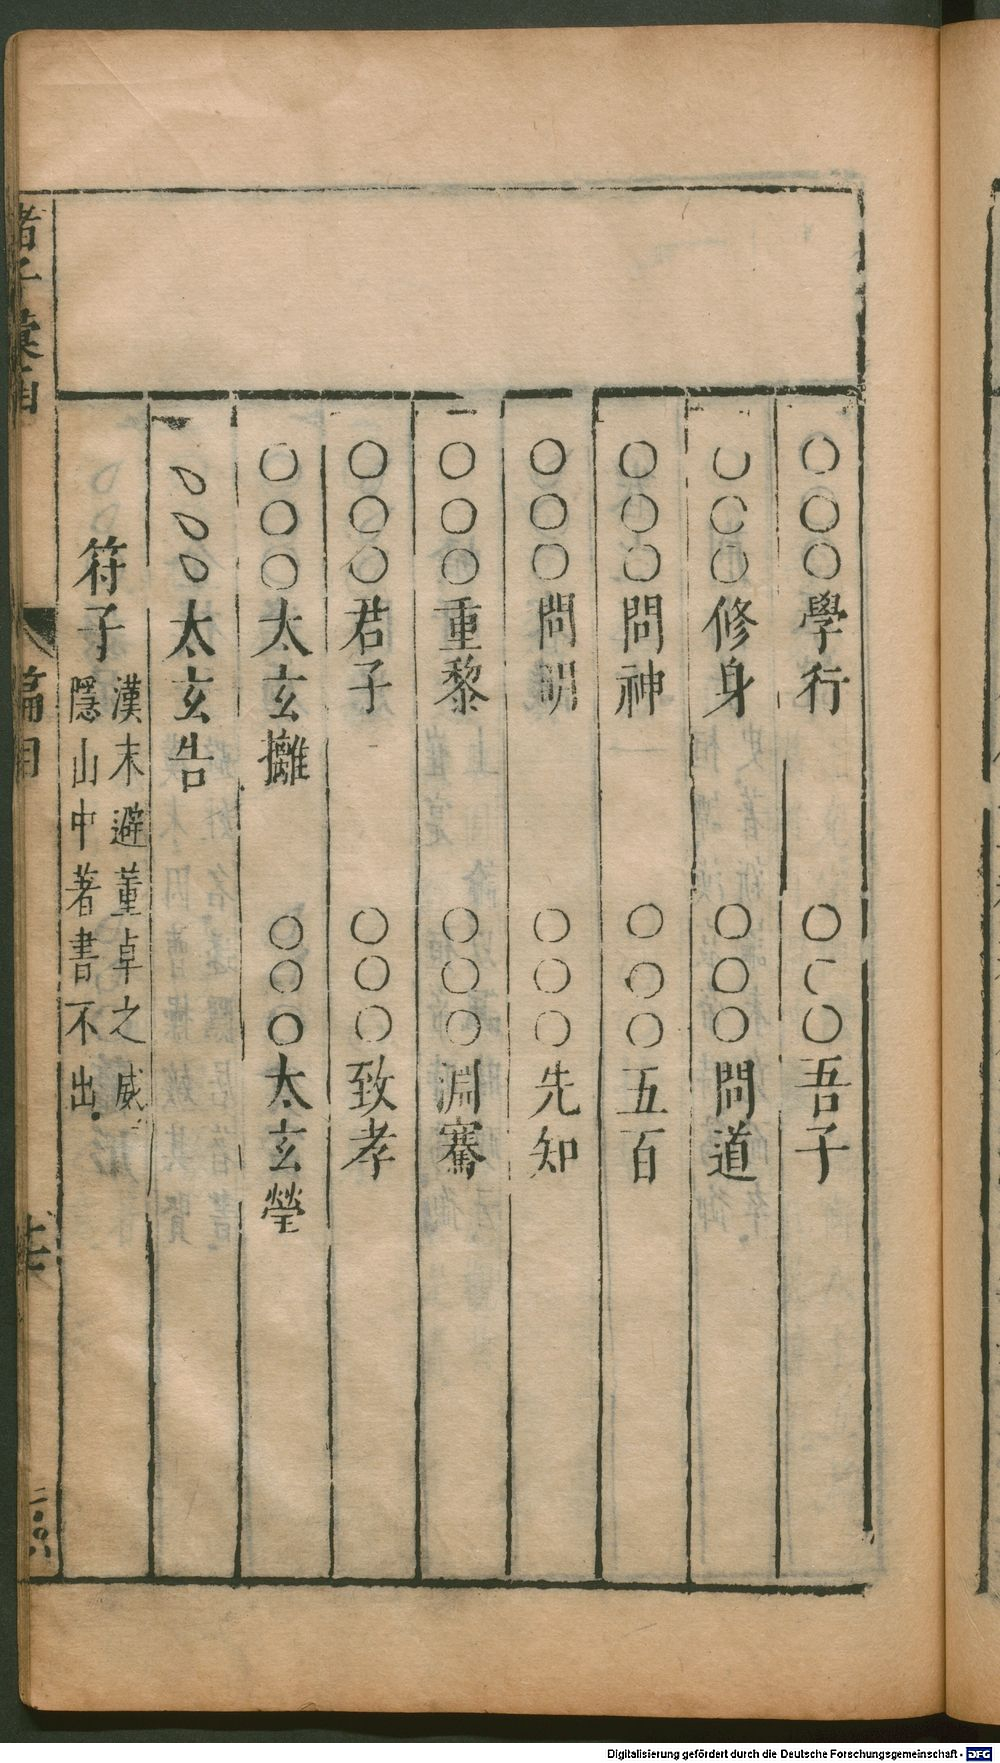 ○○○學行 ○○○吾子
○○○修身 ○○○問道
○○○問神 ○○○五百
○○○問明 ○○○先知
○○○重黎 ○○○淵騫
○○○君子 ○○○致孝
○○○太玄攡 ○○○太玄瑩
○○○太玄告
符子
漢末避董卓之威
隱山中著書不出
諸子彙函
篇目
Digitalisierung gefördert durch die Deutsche Forschungsgemeinschaft - DFG